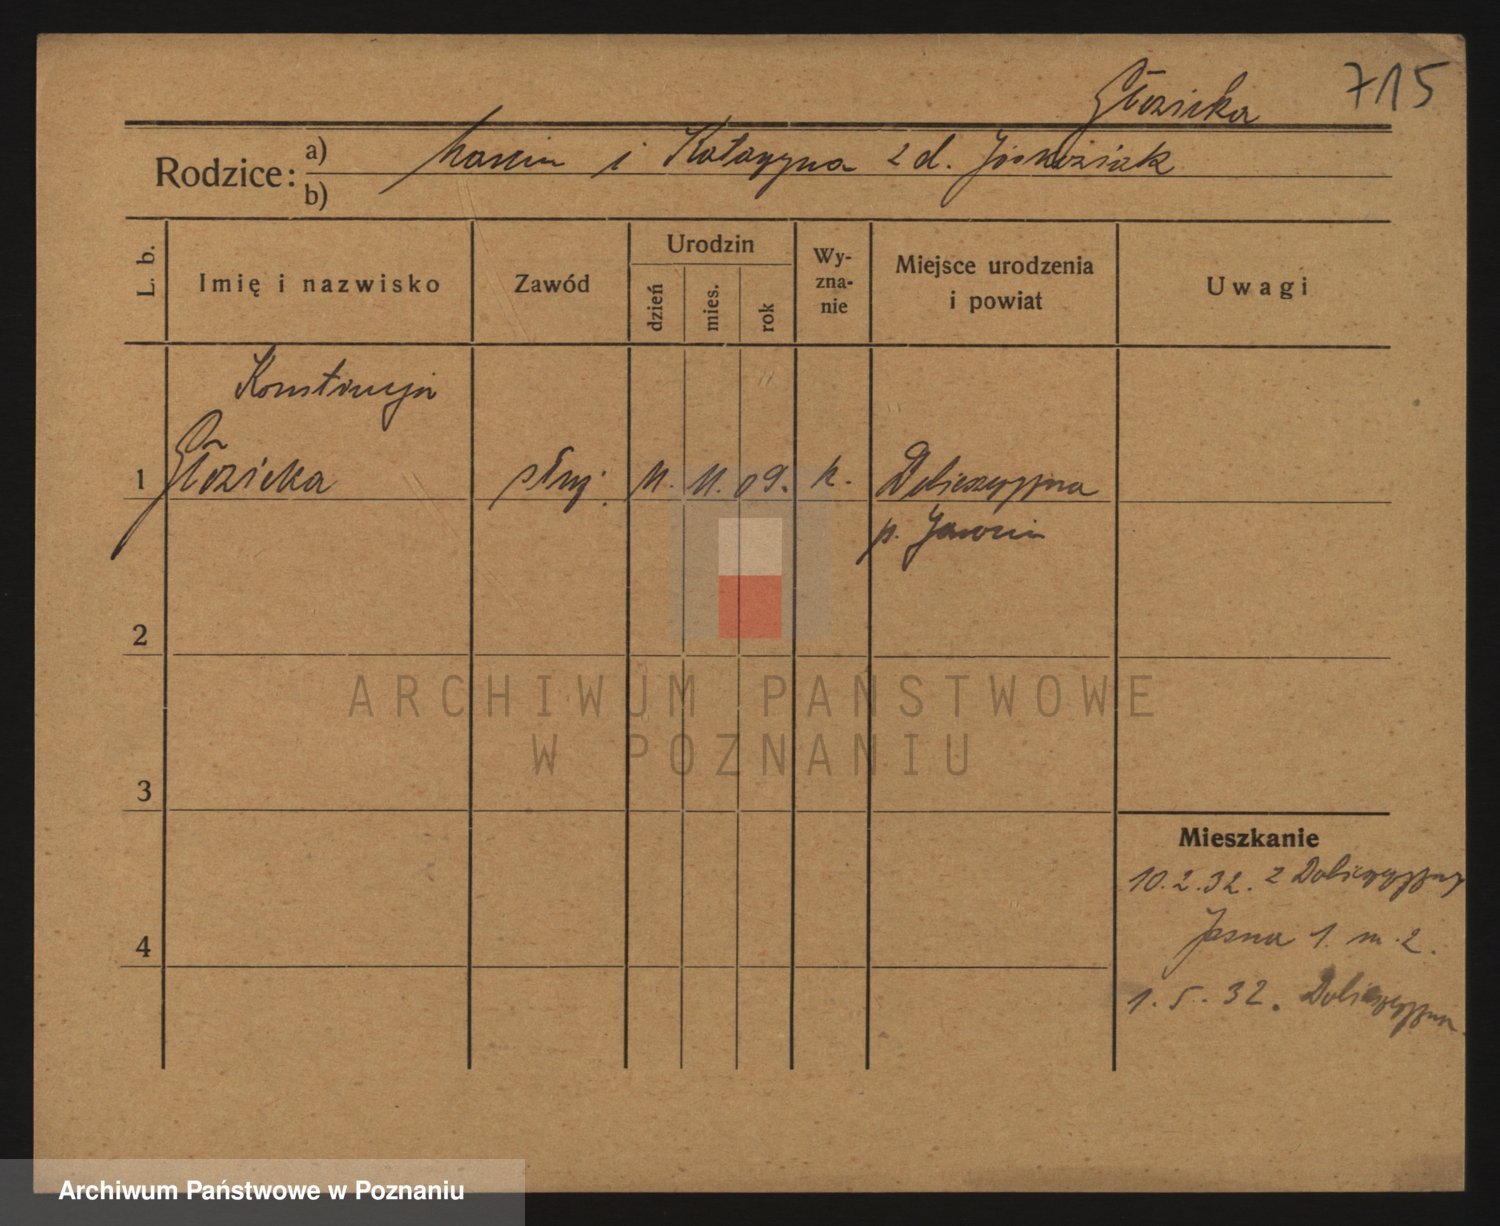 715
Głozicka
Rodzice: a) Marcin i Katarzyna z d.
b)
L. b.
Imię i nazwisko
Zawód
Urodzin
dzień
mies.
rok
Wy-
zna-
nie
Miejsce urodzenia
i powiat
Uwagi
Konstancja
1 Głozicka służ. 11. 11. 09. k. Dobieszczyzna
p. Jarocin
2
3
4
Mieszkanie
10.2.32. z Dobieszczyzny
Jasna 1. m. 2.
1.5.32. Dobieszczyzna
ARCHIWUM PAŃSTWOWE
W POZNANIU
Archiwum Państwowe w Poznaniu